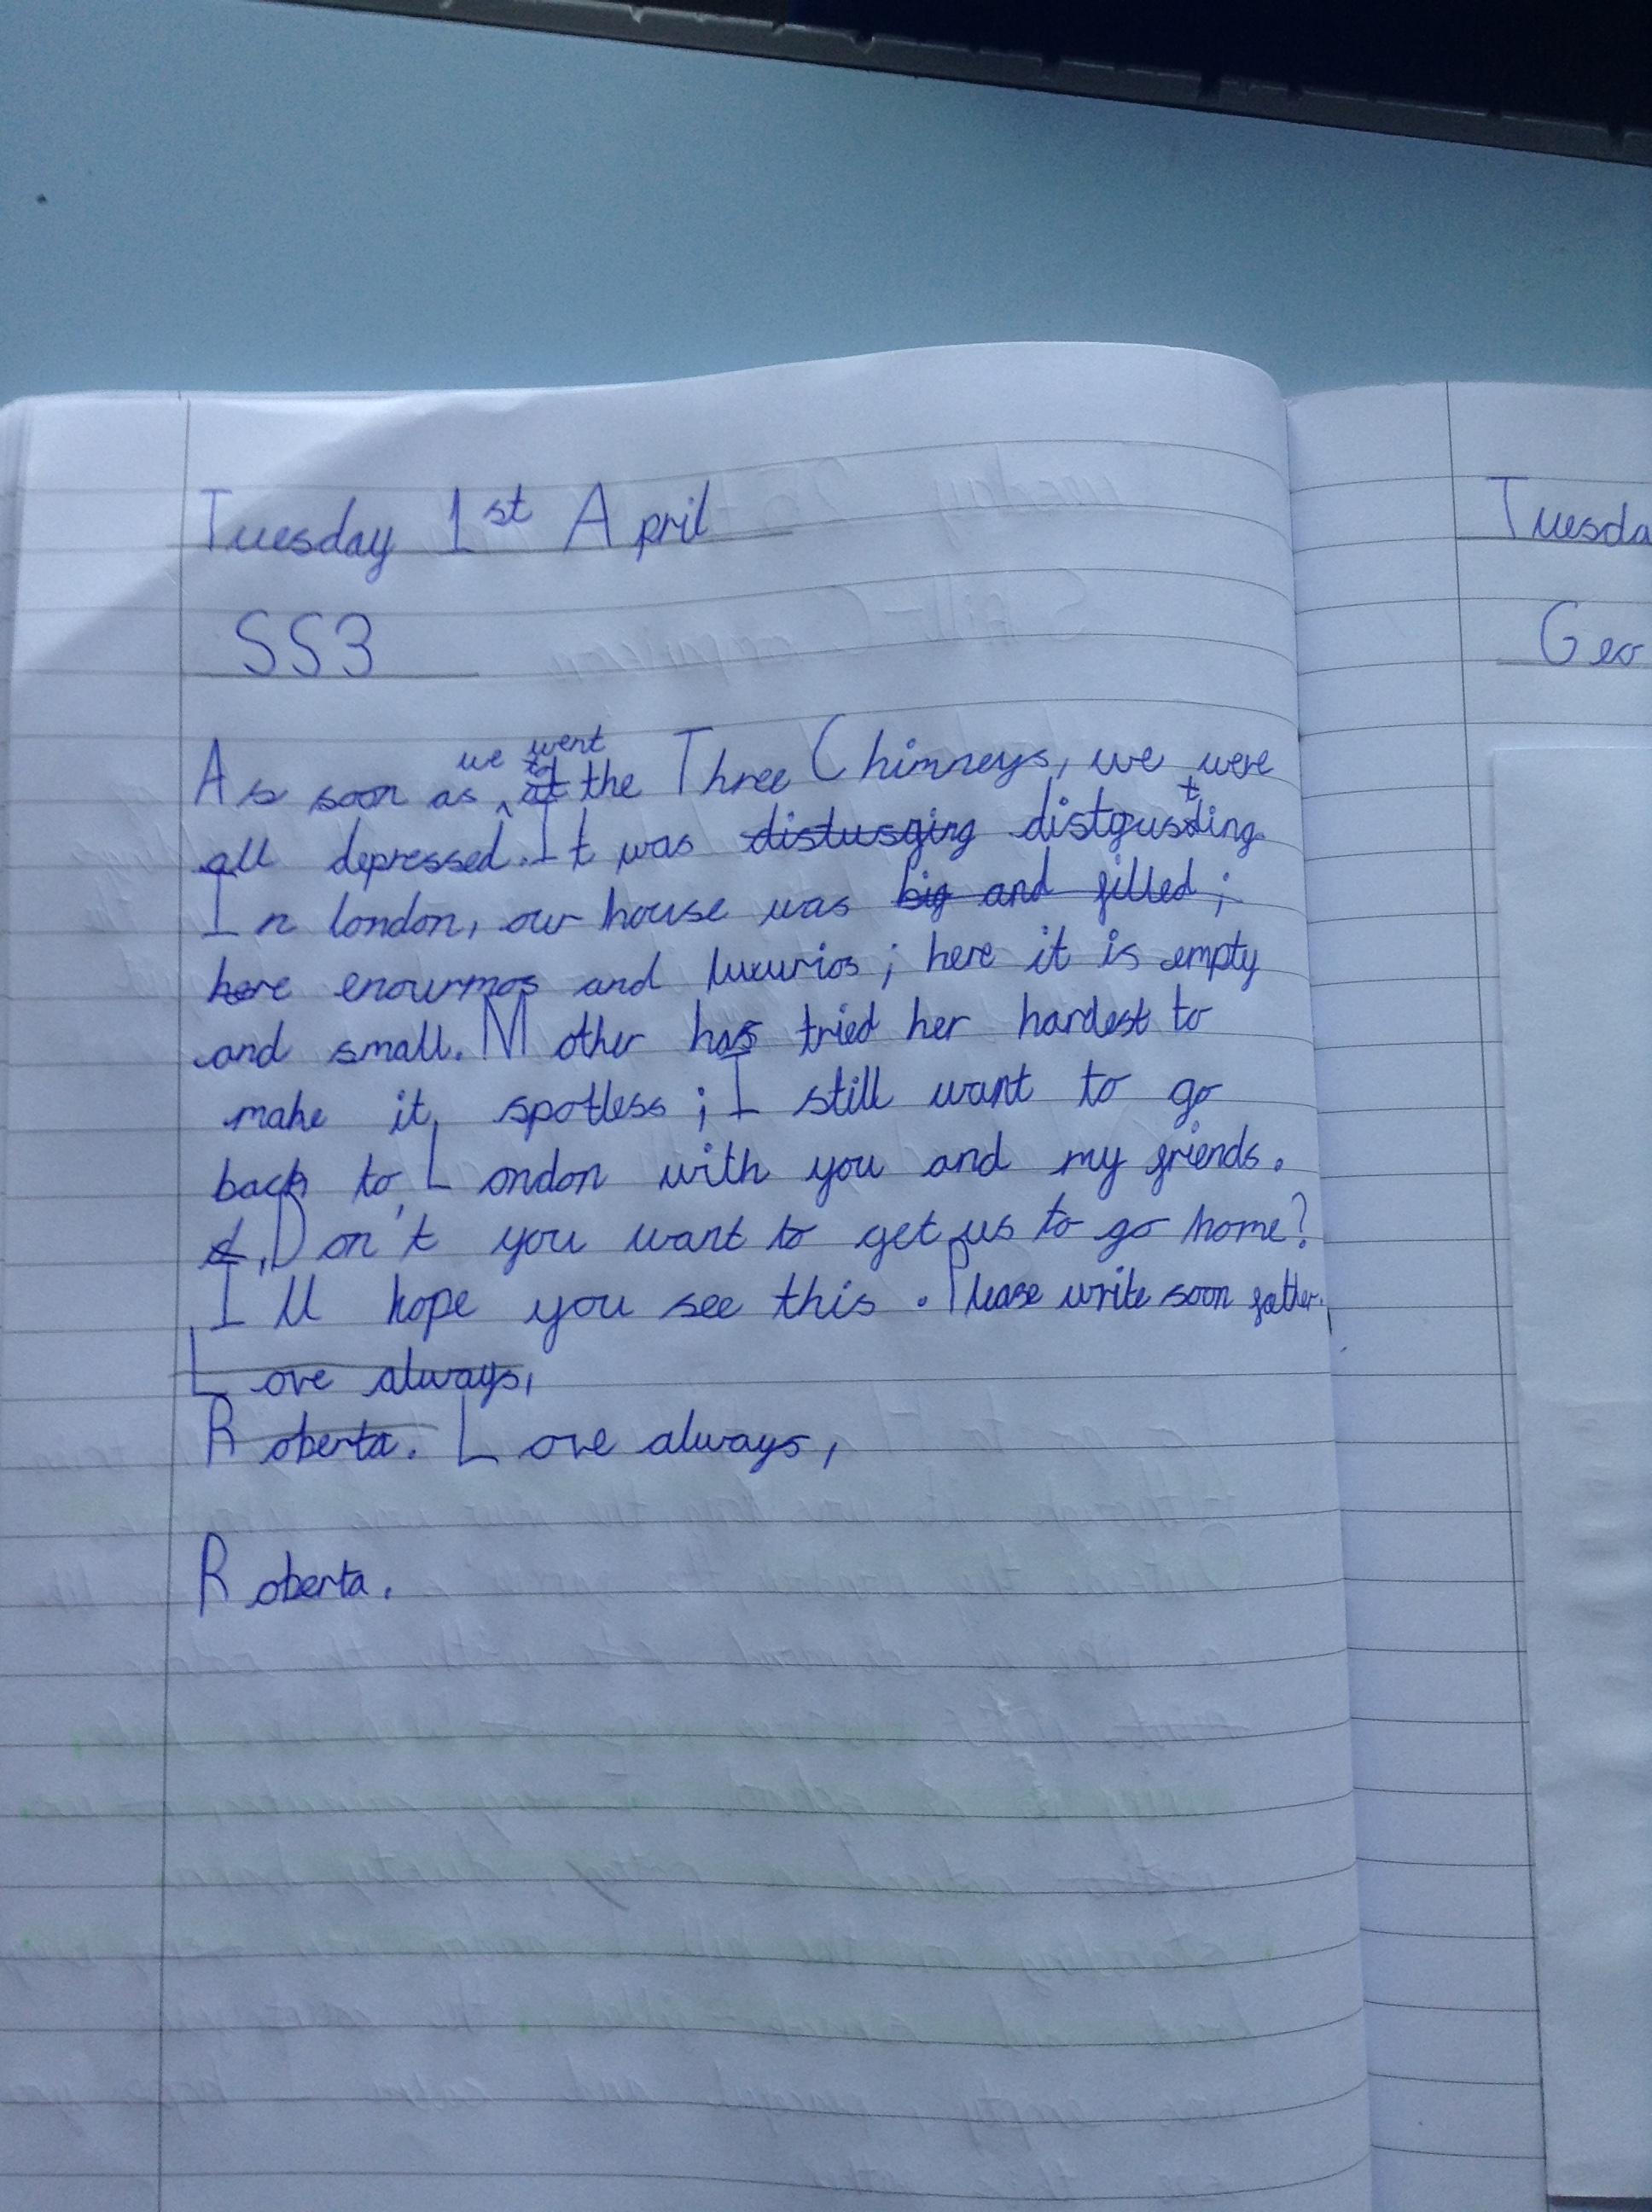 Tuesday 1st April
SS3
As soon as we went to the Three Chimneys, we were
all depressed. It was distusging distgusting
In london, our house was big and filled;
here enourmos and luxurios; here it is empty
and small. Mother has tried her hardest to
make it spotless; I still want to go
back to London with you and my friends.
d Don't you want to get us to go home?
I'll hope you see this. Please write soon father.
Love always,
Roberta. Love always,
Roberta.
Tuesda
Geo